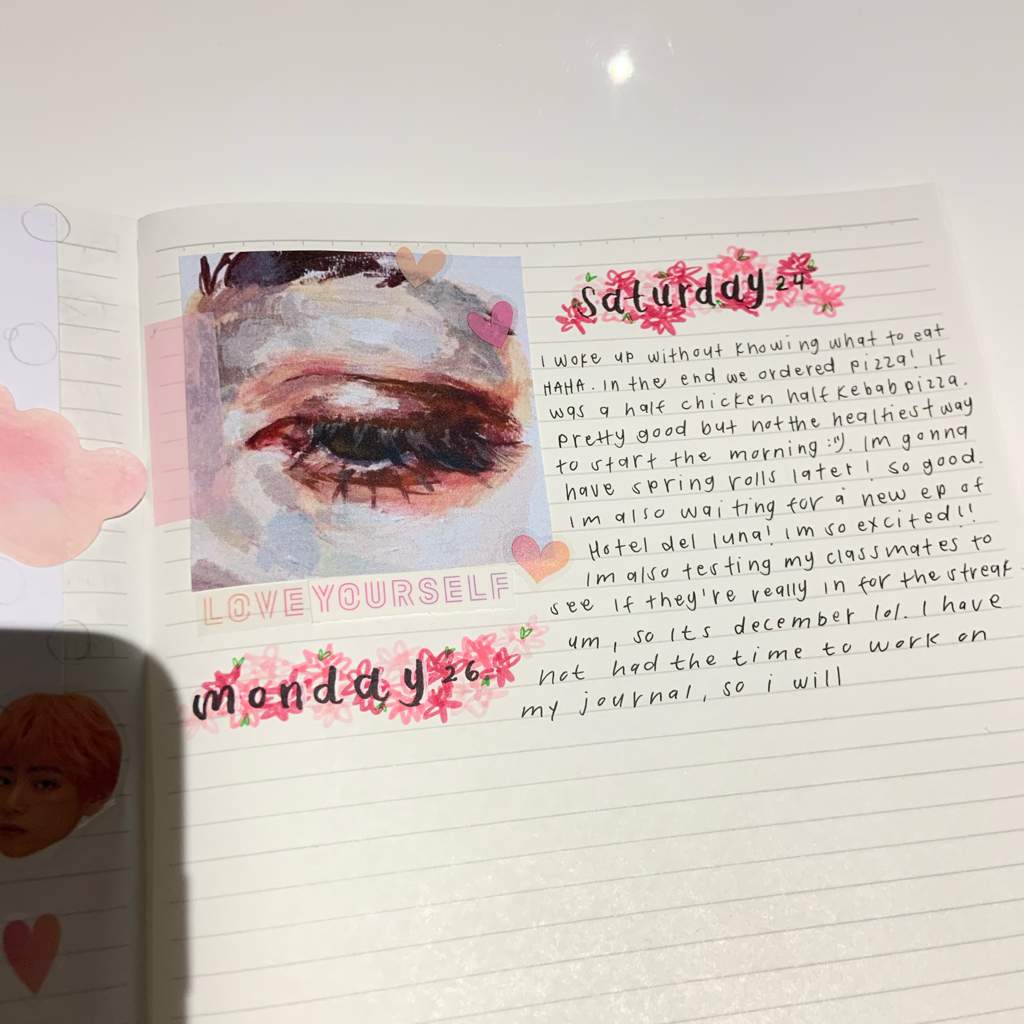 saturday 24
I woke up without knowing what to eat
HAHA. In the end we ordered pizza! It
was a half chicken half Kebab pizza.
pretty good but not the healtiest way
to start the morning :'). Im gonna
have spring rolls later! so good.
Im also waiting for a new ep of
Hotel del luna! Im so excited!!
Im also testing my classmates to
see if they're really in for the streak
LOVE YOURSELF
monday 26.
um, so its december lol. I have
not had the time to work on
my journal, so i will